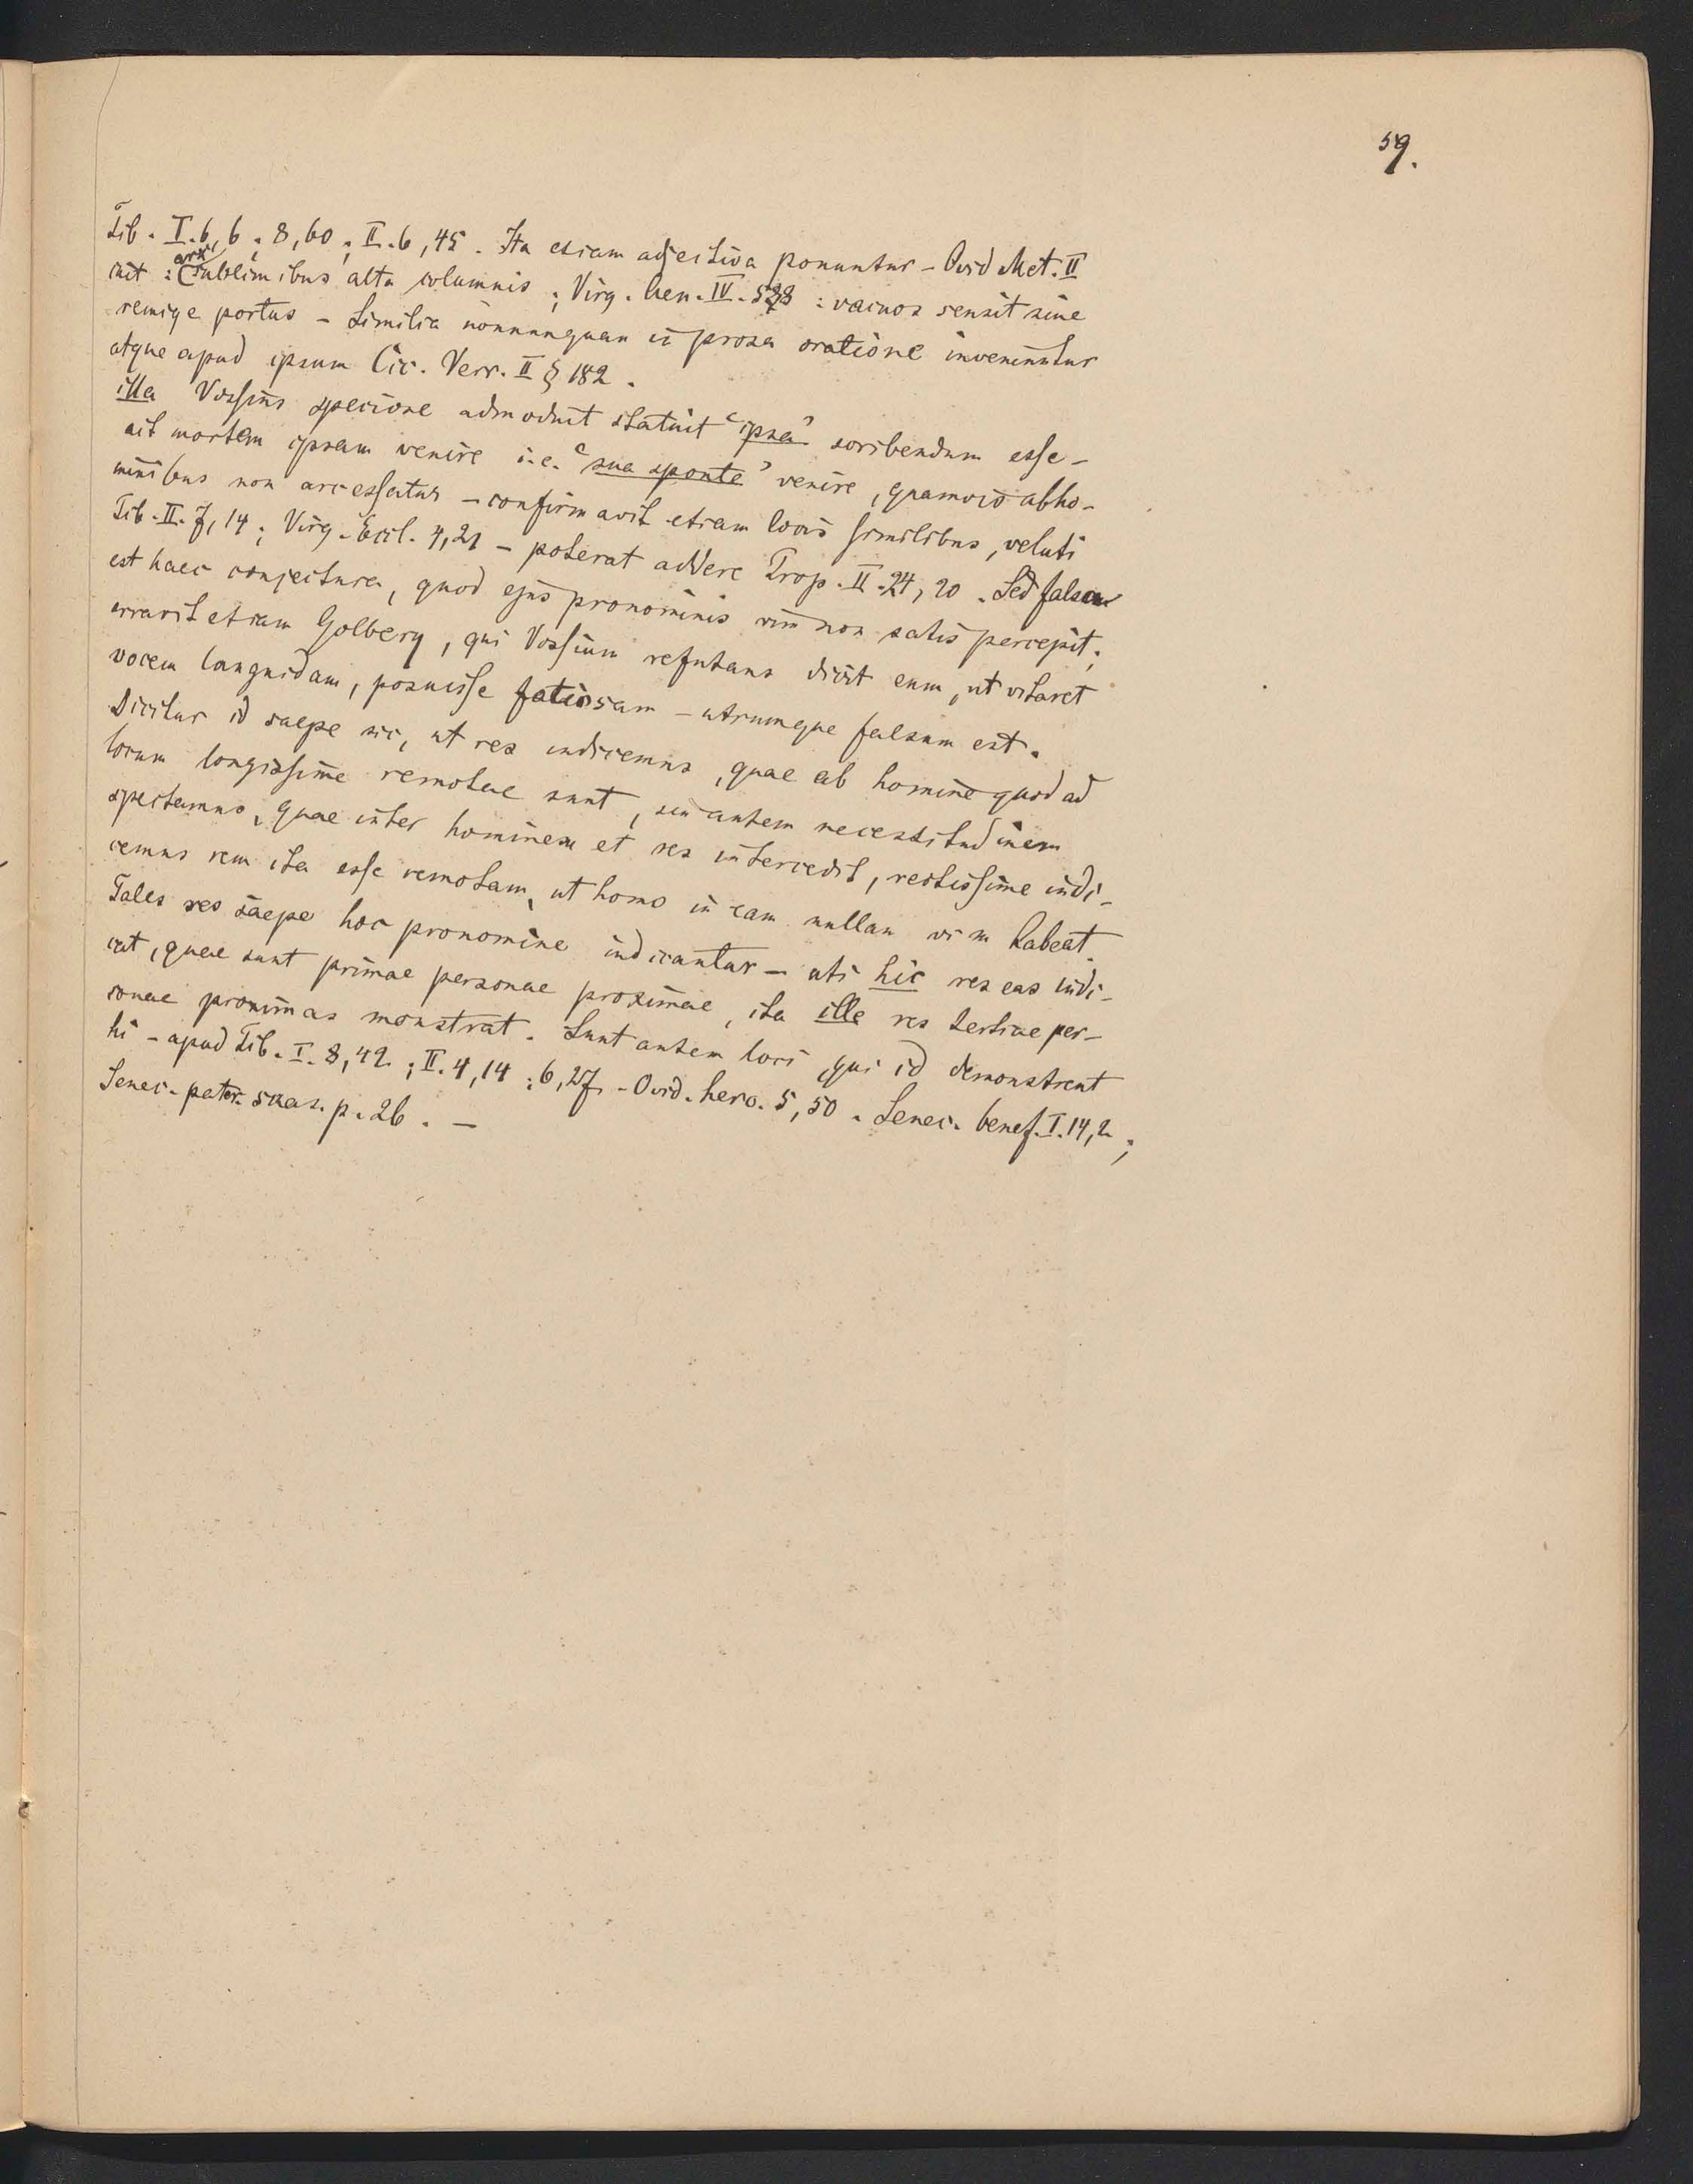 59.
Tib. I. 6, 6; 8, 60; II. 6, 45. Ita etiam adjectiva ponuntur – Ovid Met. II
init: (arx) sublimibus alta columnis; Virg. Aen. IV. 588 : vacuos sensit sine
remige portus – Similia nonnunquam in prosa oratione inveniuntur
atque apud ipsum Cic. Verr. II § 182.
illa Vossius speciose admodum statuit "ipsa" scribendum esse –
ait mortem ipsam venire i.e. "sua sponte" venire, quamvis ab ho-
minibus non arcessatur – confirmavit etiam locis similibus, veluti
Tib. II. 7, 14; Virg. Ecl. 4, 21 – poterat addere Prop. II. 24, 20. Sed falsa
est haec conjectura, quod ejus pronominis vim non satis percepit;
erravit etiam Golbery, qui Vossium refutans dicit eum, ut vitaret
vocem languidam, posuisse – utrumque falsum est.
Dicitur id saepe sic, ut res indicemus, quae ab homine quod ad
locum longissime remotae sunt, sin autem necessitudinem
spectamus, quae inter hominem et res intercedit, rectissime indi-
cemus rem ita esse remotam, ut homo in eam nullam vim habeat.
Tales res saepe hoc pronomine indicantur – uti hic res eas indi-
cat, quae sunt primae personae proximae, ita ille res tertiae per-
sonae proximas monstrat. Sunt autem loci, qui id demonstrent
hi – apud Tib. I. 8, 42; II. 4, 14; 6, 27 – Ovid. hero. 5, 50. Senec. benef. I. 14, 2;
Senec. pater. suas. p. 26. –